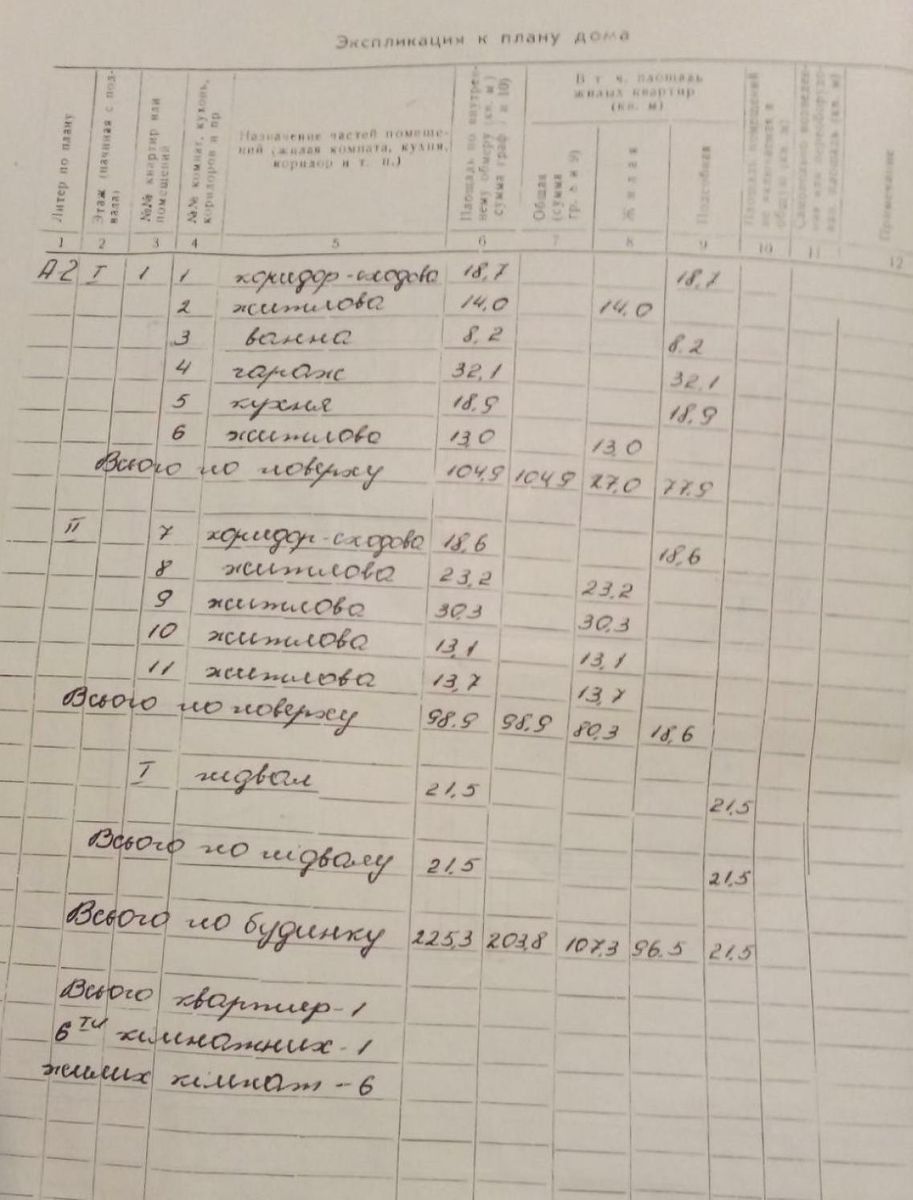 Экспликация к плану дома
Литер по плану
Этаж (начиная с подвала)
№№ квартир или помещений
№№ комнат, кухонь, коридоров и пр.
Назначение частей помещений (жилая комната, кухня, коридор и т. п.)
Площадь по внутреннему обмеру (кв. м) сумма граф 7 и 10)
В т. ч. площадь жилых квартир (кв. м)
Общая (сумма гр. 8 и 9)
Жилая
Подсобная
Примечание
1 2 3 4 5 6 7 8 9 10 11 12
А-2 I 1 1 коридор-сходова 18,7 18,7
2 житлова 14,0 14,0
3 ванна 8,2 8.2
4 гараж 32,1 32,1
5 кухня 18,9 18,9
6 житлова 13,0 13,0
Всього по поверху 104,9 104,9 27,0 77,9
II 7 коридор-сходова 18,6 18,6
8 житлова 23,2 23,2
9 житлова 30,3 30,3
10 житлова 13,1 13,1
11 житлова 13,7 13,7
Всього по поверху 98.9 98,9 80,3 18,6
I підвал 21,5 21,5
Всього по підвалу 21,5 21,5
Всього по будинку 225,3 203,8 107,3 96.5 21,5
Всього квартир-1
6ти кімнатних-1
жилих кімнат-6